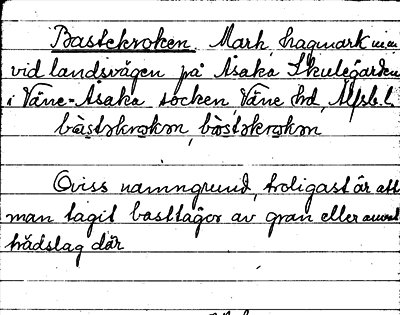 Bastekroken. Mark, hagmark m.m.
vid landsvägen på Åsaka Skulegården
i Väne-Åsaka socken, Väne hd, Älfsb. l.
bàstəkrokən, bàstəkrokən
Oviss namngrund, troligast är att
man tagit basttågor av gran eller annat
trädslag där